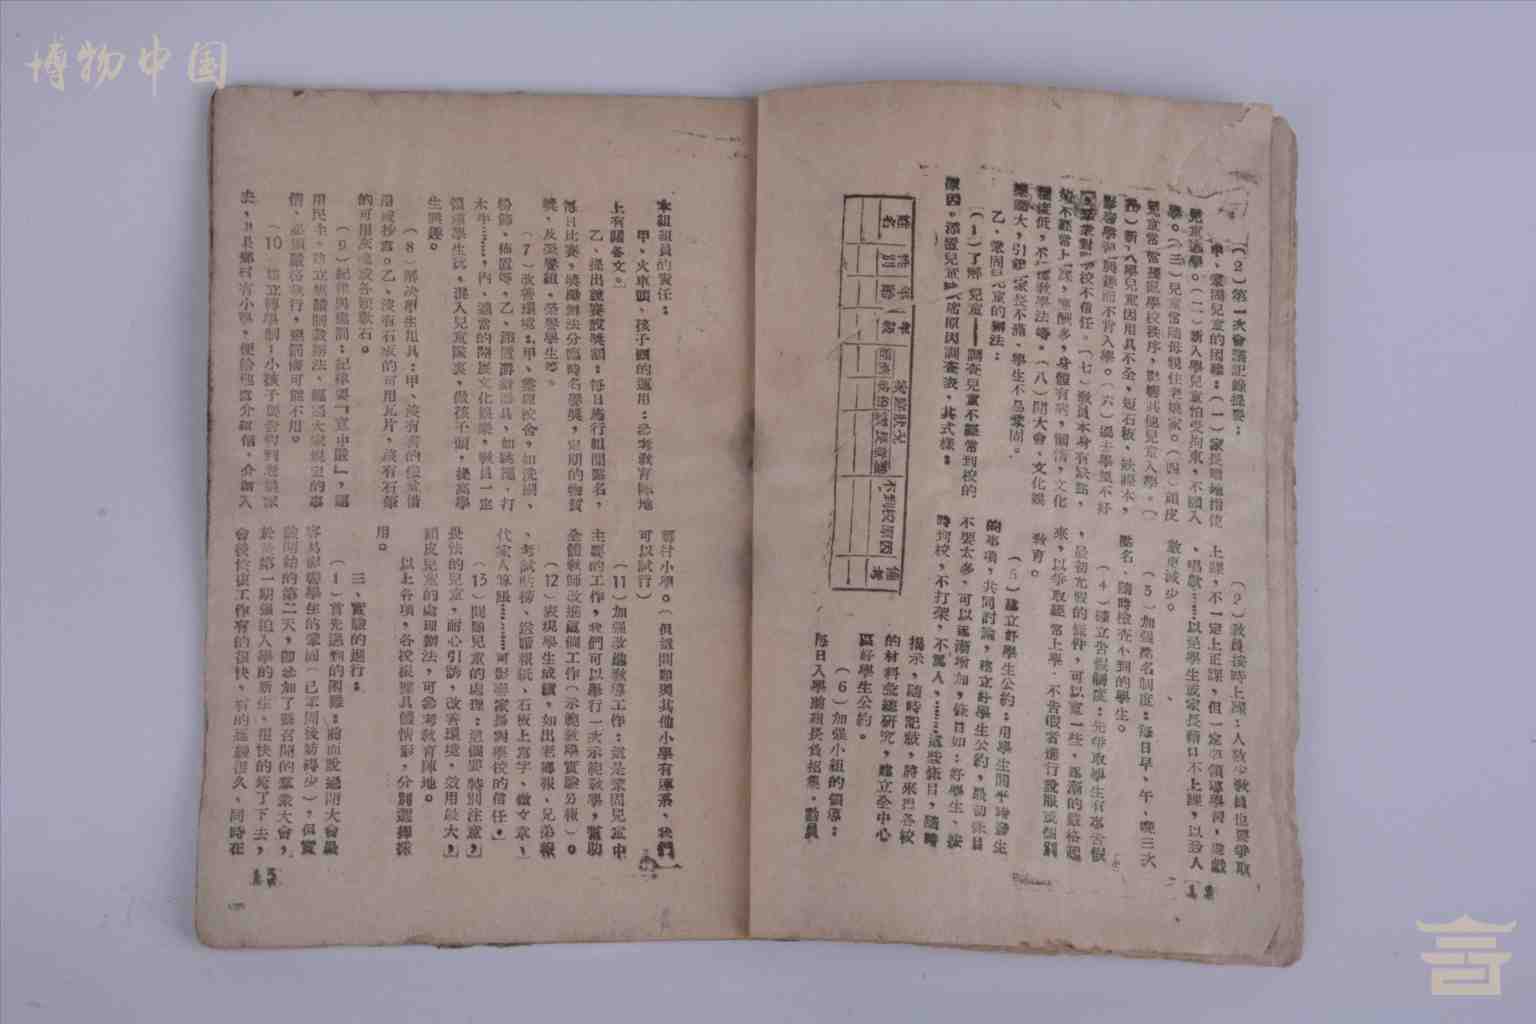 博物中国
(2)第一次會議記錄提要：
甲、鞏固兒童的困難：(1)家長隨地指使
兒童退學。(二)新入學兒童怕受拘束，不願入
學。(三)兒童常隨母親住老娘家。(四)頑皮
兒童常常擾亂學校秩序，影響其他兒童入學。(
五)新入學兒童因用具不全，如石板，缺課本，
影響學習興趣而不肯入學。(六)過去學風不好
羣衆對學校不信任。(七)教員本身有缺點，
如不經常上課，應酬多，身體有病，個情，文化
程度低，不懂教學法等。(八)開大會、文化娛
樂擴大，引起家長不滿，學生不易鞏固。
乙、鞏固兒童的辦法：
(1)了解兒童——調查兒童不經常到校的
原因。添置兒童缺席原因調查表，其式樣：
姓名
性別
年齡
年級
家庭狀況
不到校原因
備考
(2)教員按時上課：人數少教員也要爭取
上課，不一定上正課，但一定要領導學習，遊戲
，唱歌……以免學生或家長藉口不上課，以致人
數更減少。
(3)加強點名制度：每日早、午、晚三次
點名，隨時檢查不到的學生。
(4)確立告假制度：先爭取學生有事告假
，最初告假的條件，可以寬一些，逐漸的嚴格起
來，以爭取經常上學，不告假者進行說服或個別
教育。
(5)建立好學生公約：用學生開平時學生
的事項，共同討論，建立好學生公約，最初條目
不要太多，可以逐漸增加，條目如：好學生，按
時到校，不打架，不罵人，……這些條目，隨時
揭示，隨時記載，將來把各校
的材料彙總研究，建立全中心
區好學生公約。
(6)加強小組的領導：
每日入學前組長負招集，點員
12
本組組員的責任：
甲、火車頭、孩子團的運用：參考教育陣地
上有關各文。
乙、提出競賽設獎額：每日施行組間點名，
每日比賽，獎勵辦法分臨時名譽獎，定期的物質
獎，及榮譽組，榮譽學生等。
(7)改善環境：甲、整理校舍，如洗刷、
粉飾、佈置等，乙、添置遊戲器具，如跳繩，打
木牛……，丙、適當的開展文化娛樂，教員一定
領導學生玩，混入兒童隊裏，做孩子頭，提高學
生興趣。
(8)解決學生用具：甲、沒有書的儘量借
用或抄寫。乙、沒有石板的可用瓦片，沒有石筆
的可用灰塊或各類軟石。
(9)紀律與獎罰：紀律要「寬中嚴」，運
用民主，建立獎罰制裁辦法，經過大家規定的事
情，必須嚴格執行，懲罰儘可能不用。
(10)建立轉學制：小孩子要告假到老娘家
去，如果鄉村有小學，便給他寫介紹信，介紹入
鄰村小學。(但這問題與其他小學有連系，我們
可以試行)
(11)加強改進教導工作：這是鞏固兒童中
主要的工作，我們可以舉行一次示範教學，幫助
全體教師改進這個工作(示範教學實驗另報)。
(12)表現學生成績，如出老鄉報，兄弟報
、考試貼榜、送通報紙、石板上寫字、做文章，
代家人算賬……可影響家長與學校的信任。
(13)問題兒童的處理：這個要特別注意，
畏怯的兒童，耐心引誘，改善環境，效用最大，
頑皮兒童的處理辦法，可參考教育陣地。
以上各項，各校按照具體情形，分別選擇採
用。
三、實驗的進行：
(1)首先遇到的困難：前面說過開大會最
容易影響學生的鞏固(己羊周後訪得少)，但實
驗開始的第二天，即參加了縣召開的羣衆大會，
於是第一期強迫入學的新生，很快的垮了下去，
會後恢復工作有的很快，有的連續很久，同時在
13